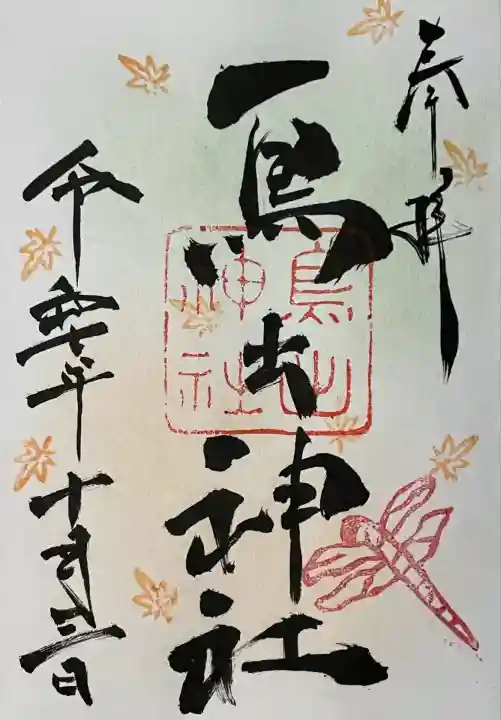 奉拝
鳥出神社
鳥出
神社
令和七年十月三日